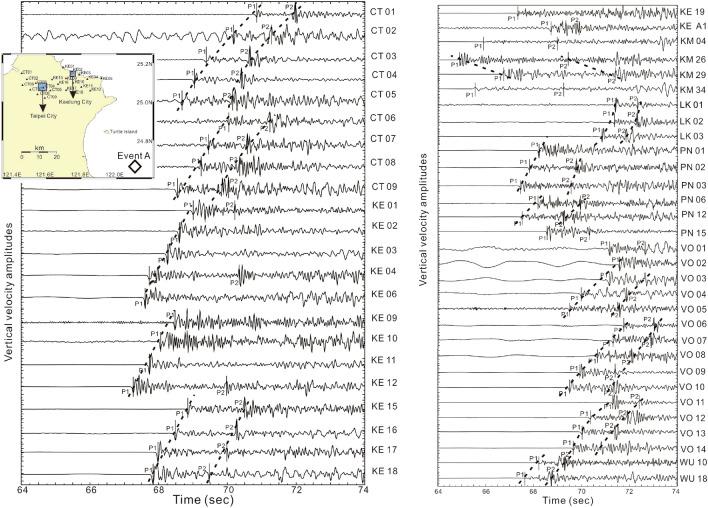 Vertical velocity amplitudes
CT 01
CT 02
CT 03
CT 04
CT 05
CT 06
CT 07
CT 08
CT 09
KE 01
KE 02
KE 03
KE 04
KE 06
KE 09
KE 10
KE 11
KE 12
KE 15
KE 16
KE 17
KE 18
P1
P2
64 66 68 70 72 74
Time (sec)
25.2N
25.0N
24.8N
Taipei City
Keelung City
Turtle Island
km
0 10 20
Event A
121.4E 121.6E 121.8E 122.0E
Vertical velocity amplitudes
KE 19
KE A1
KM 04
KM 26
KM 29
KM 34
LK 01
LK 02
LK 03
PN 01
PN 02
PN 03
PN 06
PN 12
PN 15
VO 01
VO 02
VO 03
VO 04
VO 05
VO 06
VO 07
VO 08
VO 09
VO 10
VO 11
VO 12
VO 13
VO 14
WU 10
WU 18
P1
P2
64 66 68 70 72 74
Time (sec)